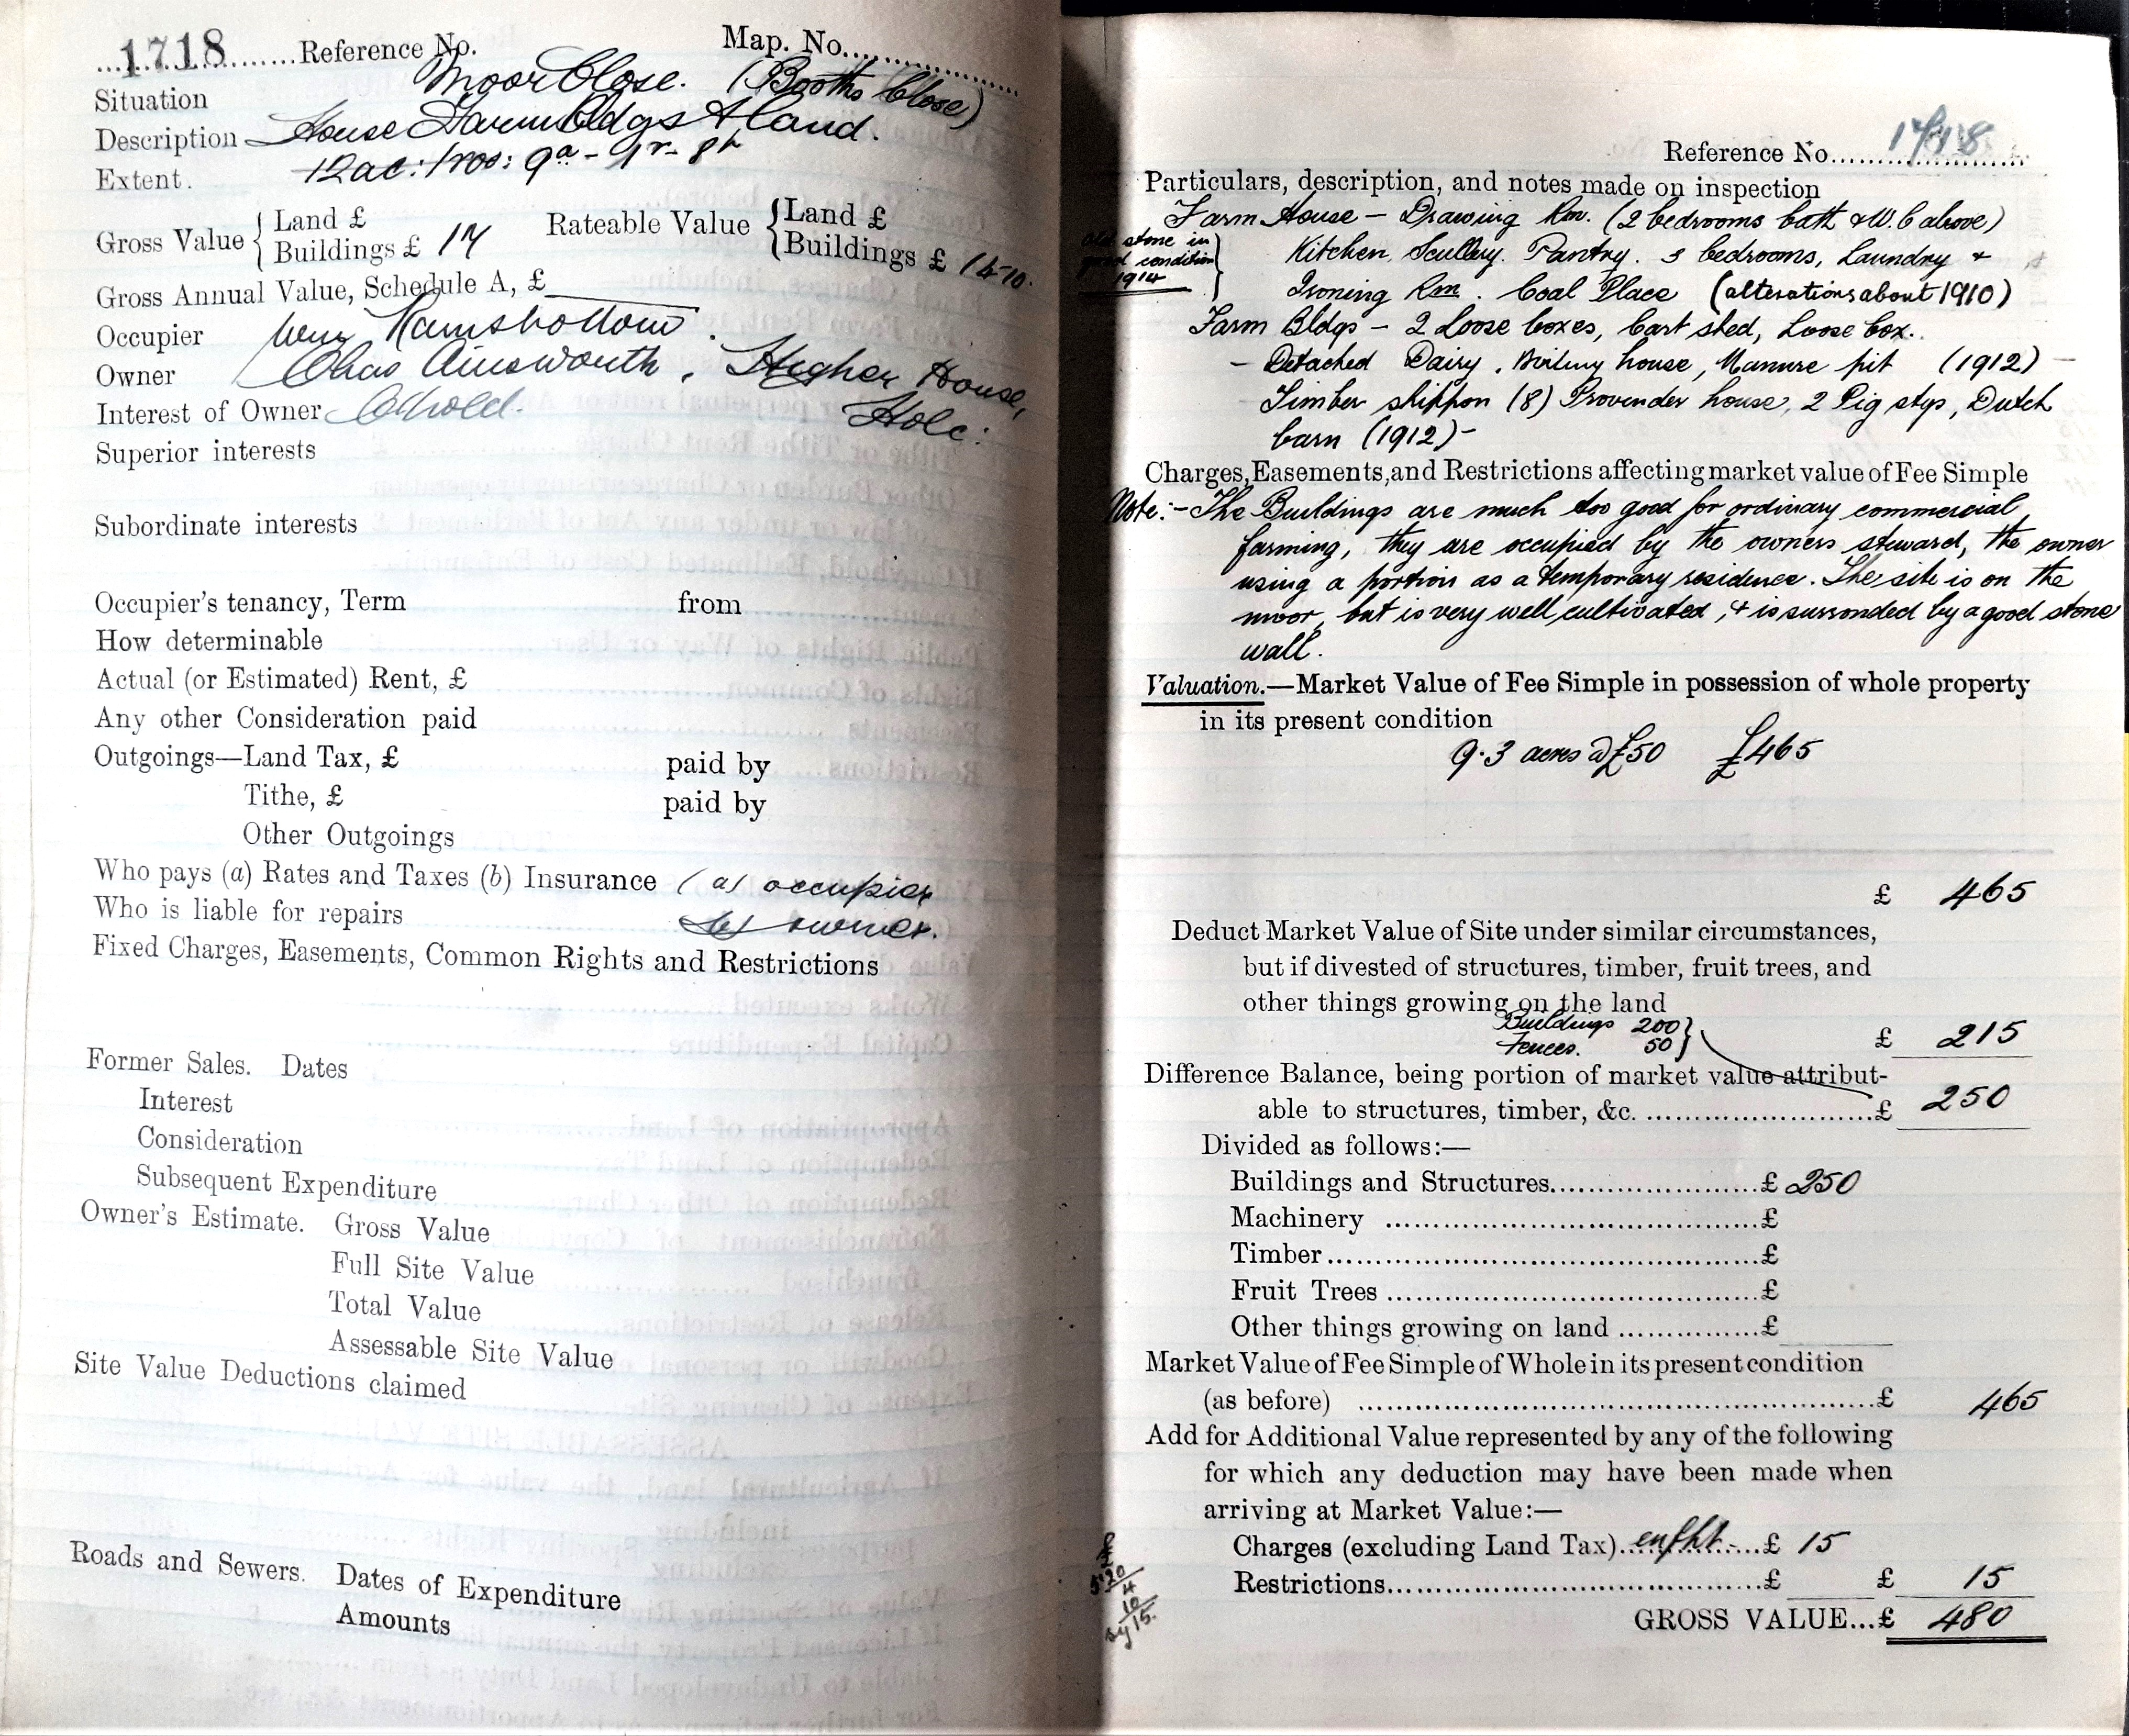 1718 Reference No. Map. No.
Situation Moor Close. (Booths Close)
Description House Farm Bldgs & land.
Extent. 12ac: 1roo: 9a - 1r - 8p
Gross Value { Land £
Buildings £ 17
Rateable Value { Land £
Buildings £ 15-10.
Gross Annual Value, Schedule A, £
Occupier Wm Ramsbottom.
Owner Chas Ainsworth, Higher House,
Interest of Owner C'hold. Holc:
Superior interests
Subordinate interests
Occupier's tenancy, Term from
How determinable
Actual (or Estimated) Rent, £
Any other Consideration paid
Outgoings—Land Tax, £ paid by
Tithe, £ paid by
Other Outgoings
Who pays (a) Rates and Taxes (b) Insurance (a) occupier
Who is liable for repairs (b) owner.
Fixed Charges, Easements, Common Rights and Restrictions
Former Sales. Dates
Interest
Consideration
Subsequent Expenditure
Owner's Estimate. Gross Value
Full Site Value
Total Value
Assessable Site Value
Site Value Deductions claimed
Roads and Sewers. Dates of Expenditure
Amounts
Reference No. 1718
Particulars, description, and notes made on inspection
Farm House — Drawing Rm. (2 bedrooms bath & W.C above)
Old stone in
good condition
1914
Kitchen, Scullery. Pantry. 3 bedrooms, Laundry &
Ironing Rm. Coal Place (alterations about 1910)
Farm Bldgs — 2 Loose boxes, Cart shed, Loose box.
— Detached Dairy, Boiling house, Manure pit (1912) —
Timber shippon (8) Provender house, 2 Pig stys, Dutch
barn (1912) -
Charges, Easements, and Restrictions affecting market value of Fee Simple
Note:- The Buildings are much too good for ordinary commercial
farming, they are occupied by the owners steward, the owner
using a portion as a temporary residence. The site is on the
moor, but is very well cultivated, & is surronded by a good stone
wall.
Valuation.—Market Value of Fee Simple in possession of whole property
in its present condition
9.3 acres @ £50 £465
£ 465
Deduct Market Value of Site under similar circumstances,
but if divested of structures, timber, fruit trees, and
other things growing on the land
Buildings 200
Fences. 50
£ 215
Difference Balance, being portion of market value attribut-
able to structures, timber, &c. £ 250
Divided as follows:—
Buildings and Structures £ 250
Machinery £
Timber £
Fruit Trees £
Other things growing on land £
Market Value of Fee Simple of Whole in its present condition
(as before) £ 465
Add for Additional Value represented by any of the following
for which any deduction may have been made when
arriving at Market Value:—
Charges (excluding Land Tax) enfht £ 15
Restrictions £ £ 15
GROSS VALUE...£ 480